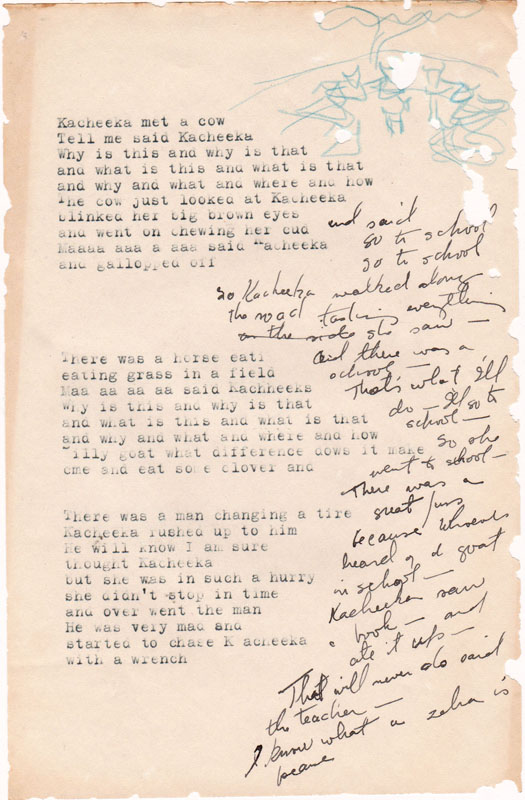 Kacheeka met a cow
Tell me said Kacheeka
Why is this and why is that
and what is this and what is that
and why and what and where and how
The cow just looked at Kacheeka
blinked her big brown eyes
and went on chewing her cud
Maaaa aaa a aaa said Kacheeka
and gallopped off
and said
go to school
go to school
So Kacheeka walked along
the road tasting everything
on the side she saw —
And there was a
school —
That's what I'll
do — I'll go to
school —
So she
went to school —
There was a
great fuss
because whoever
heard of a goat
in school —
Kacheeka saw
a book — and
ate it up —
That will never do said
the teacher —
I know what a zebra is
There was a horse eati
eating grass in a field
Maa aa aa aa said Kachheeks
Why is this and why is that
and what is this and what is that
and why and what and where and how
illy goat what difference dows it make
cme and eat some clover and
There was a man changing a tire
Kacheeka rushed up to him
He will know I am sure
thought Kacheeka
but she was in such a hurry
she didn't stop in time
and over went the man
He was very mad and
started to chase K acheeka
with a wrench